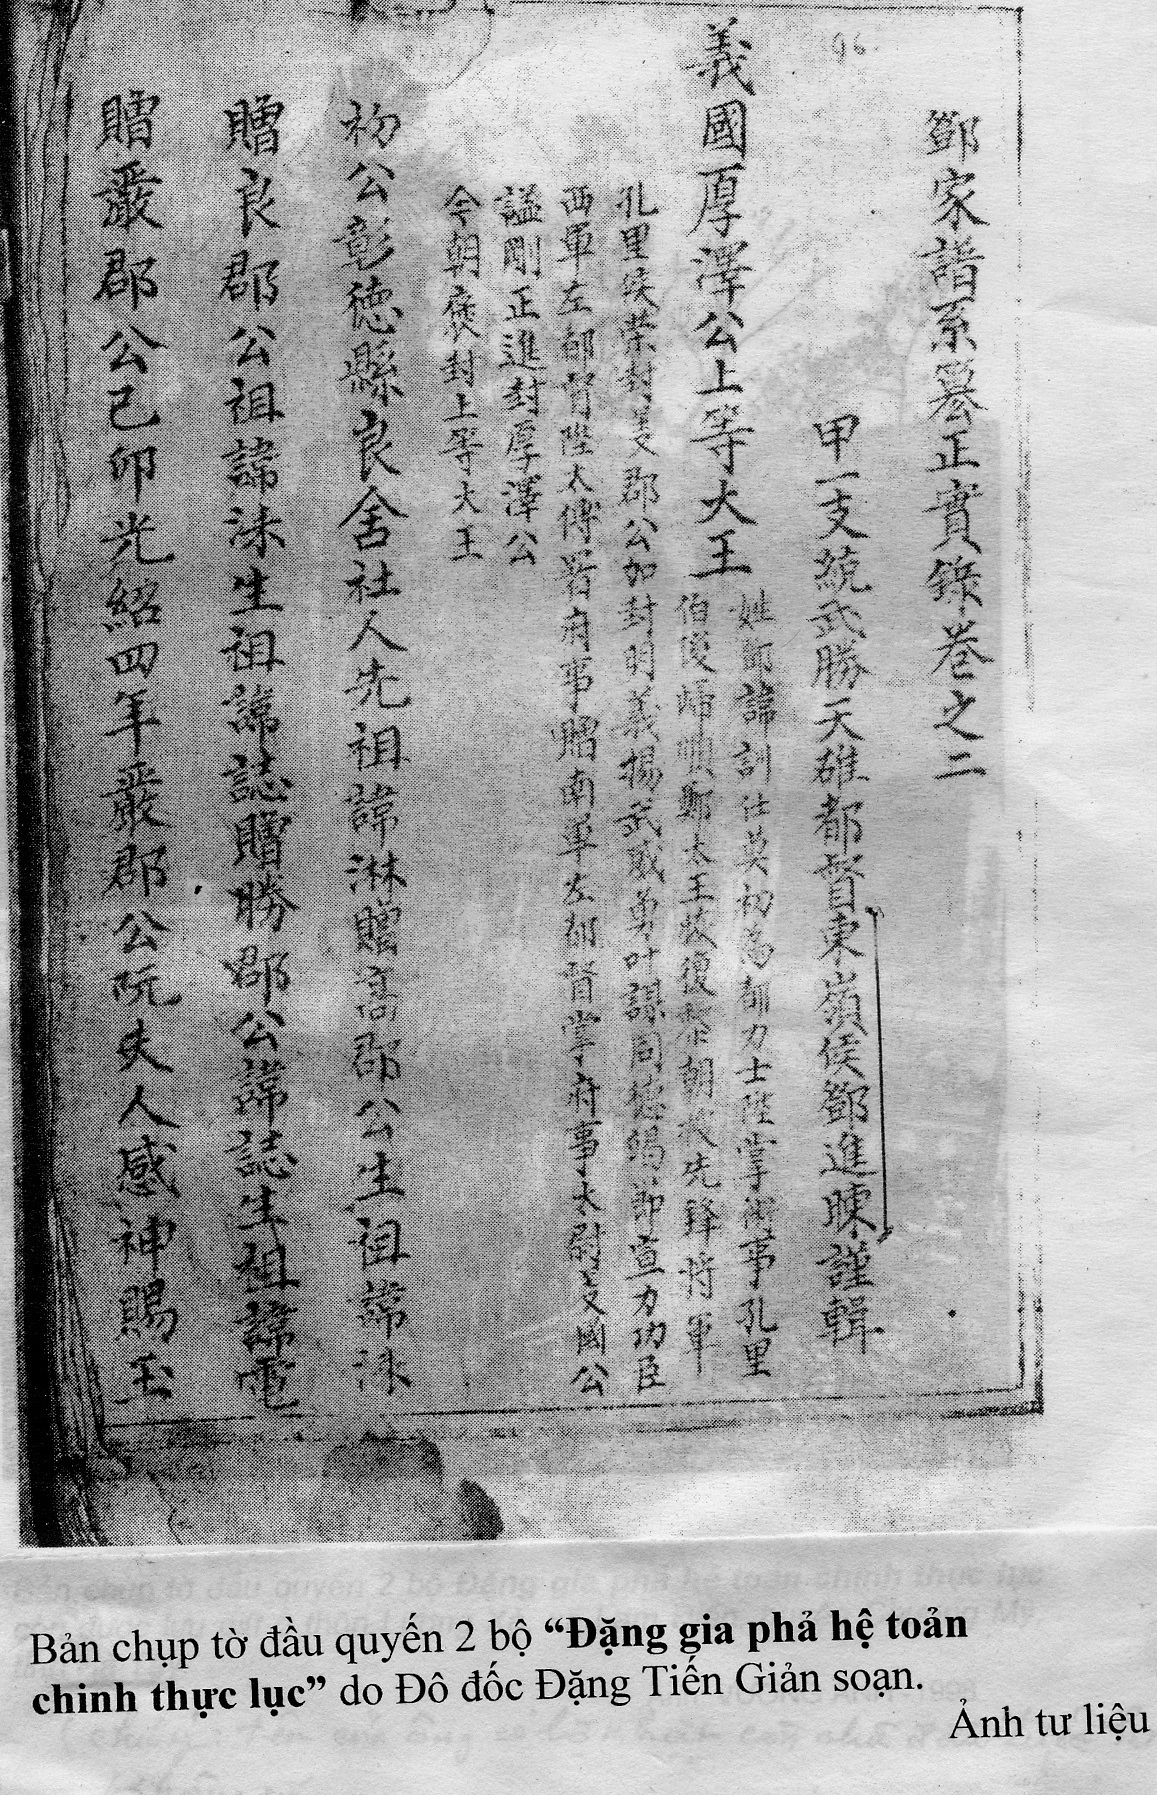 96.
鄧家譜系纂正實錄卷之二
甲一支統武勝天雄都督東嶺侯鄧進暕謹輯
義國厚澤公上等大王
姓鄧諱訓仕莫初為都力士陞掌衛事孔里
伯後歸順鄭太王恢復黎朝以先降將軍
孔里侯榮封義郡公加封明義揚武威勇叶謀同德竭節宣力功臣
西軍左都督陞太傅署府事贈南軍左都督掌府事太尉義國公
謚剛正進封厚澤公
今朝褒封上等大王
初公彰德縣良舍社人先祖諱淋贈富郡公生祖諱洙
贈良郡公祖諱洙生祖諱誌贈勝郡公諱誌生祖諱電
贈嚴郡公己卯光紹四年嚴郡公阮夫人感神賜玉
Bản chụp tờ đầu quyến 2 bộ “Đặng gia phả hệ toản
chinh thực lục” do Đô đốc Đặng Tiến Giản soạn.
Ảnh tư liệu